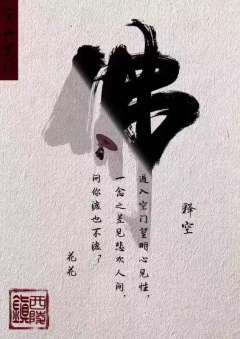 佛
释空
遁入空门望明心见性，
一念之差见悲欢人间，
问你渡也不渡？
花花
西陵